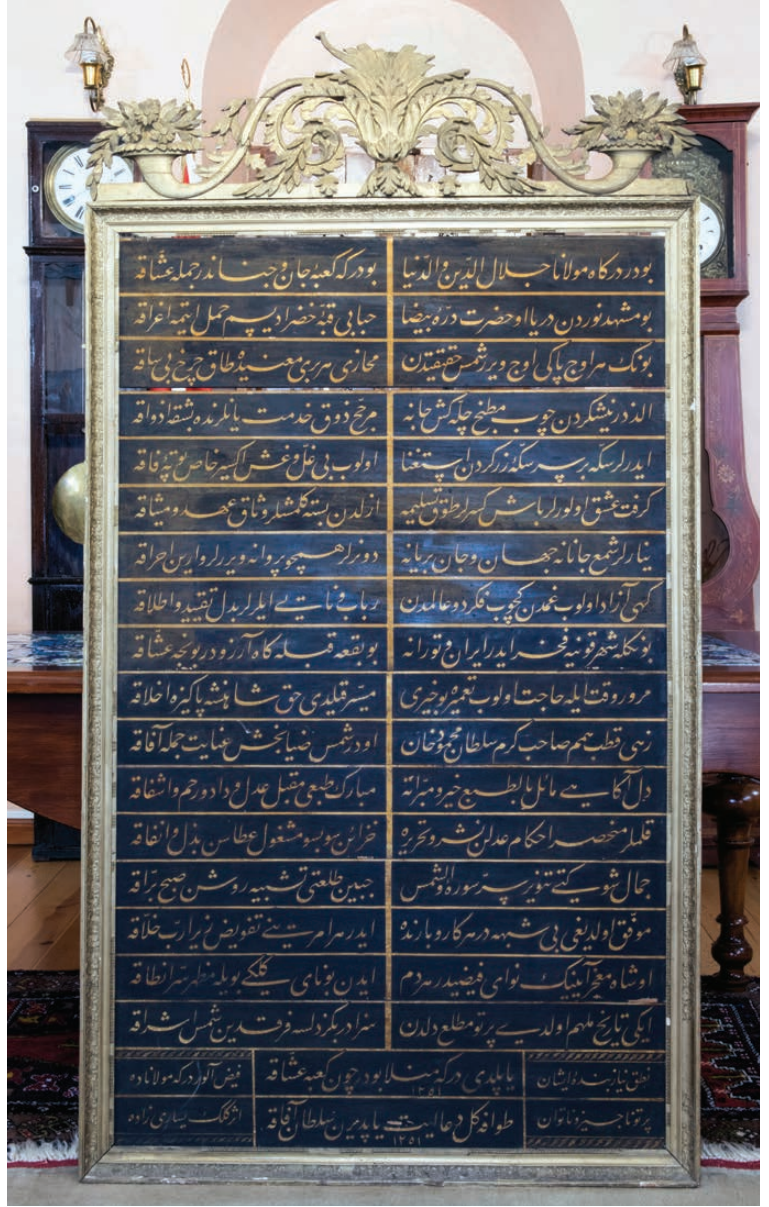 بودر دركاه مولانا جلال الدّين والدّنيا بودركه كعبهٔ جان و جناندر جمله عشاقه
بو مشهد نوردن دريا او حضرت درّهٔ بيضا حبابى قبّهٔ خضرا ديسم حمل ايتمه اغراقه
بونك هر اوج پاكى اوج ويرر شمس حقيقتدن مجازى هر برى معنيده طاق چرخ نه طاقه
الذ در نيشكردن چوب مطبخ چله كش جانه مرجّح ذوق خدمت يانلرنده بشقه اذواقه
ايدرلر سكّه بر سر سكّهٔ زردن استغنا اولوب بى غلّ و غش اكسير خاص بوتهٔ فاقه
كرفت عشق اولورلر باش كسرلر طوق تسليمه ازلدن بسته كلمشلر وثاق عهد و ميثاقه
ينارلر شمع جانانه جهان و جان بريانه دونرلر همچو پروانه ويررلر وارين احراقه
كهى آزاد اولوب غمدن كچوب فكر دو عالمدن رباب و ناى بى ايلرلر بدل تقييد و اطلاقه
بونكله شهر قونيه فخر ايدر ايران و تورانه بو بقعه قبله كاه آرزودر بونجه عشّاقه
مرور وقت ايله حاجت اولوب تعميره بو خيرى ميسّر قيلدى حق شاهنشه پاكيزه اخلاقه
زهى قطب همم صاحب كرم سلطان محمود خان اودر شمس ضيا بخش عنايت جمله آفاقه
دل آكاهى مائل بالطبع خير و مبرّاته مبارك طبعى مقبل عدل و داد و رحم و اشفاقه
قلملر منحصر احكام عدلن نشر و تحريره خزائن سوبسو مشغول عطاسن بذل و انفاقه
جمال شوكتى تنوير سرّ سورهٔ والشمس جبين طلعتى تشبيه روشن صبح برّاقه
موفّق اولديغى بى شبهه در هر كار و بارنده ايدر هر امرينى تفويض زيرا ربّ خلّاقه
او شاه معجز آيينك نواى فيضيدر هر دم ايدن بو ناى كلكى بويله مظهر سرّ انطاقه
ايكى تاريخ ملهم اولدى پرتو مطلع دلدن سزادر بكزدلسه فرقدين شمس اشراقه
نطق نياز بند درويشان ياپلدى دركه منلا بودر چون كعبه عشّاقه ١٢٥١ فيض آلور دركه مولاناده
پرتو ناچيز و ناتوان طوافه كل دعا ايت ياپديرن سلطان آفاقه ١٢٥١ اثر كلك يسارى زاده